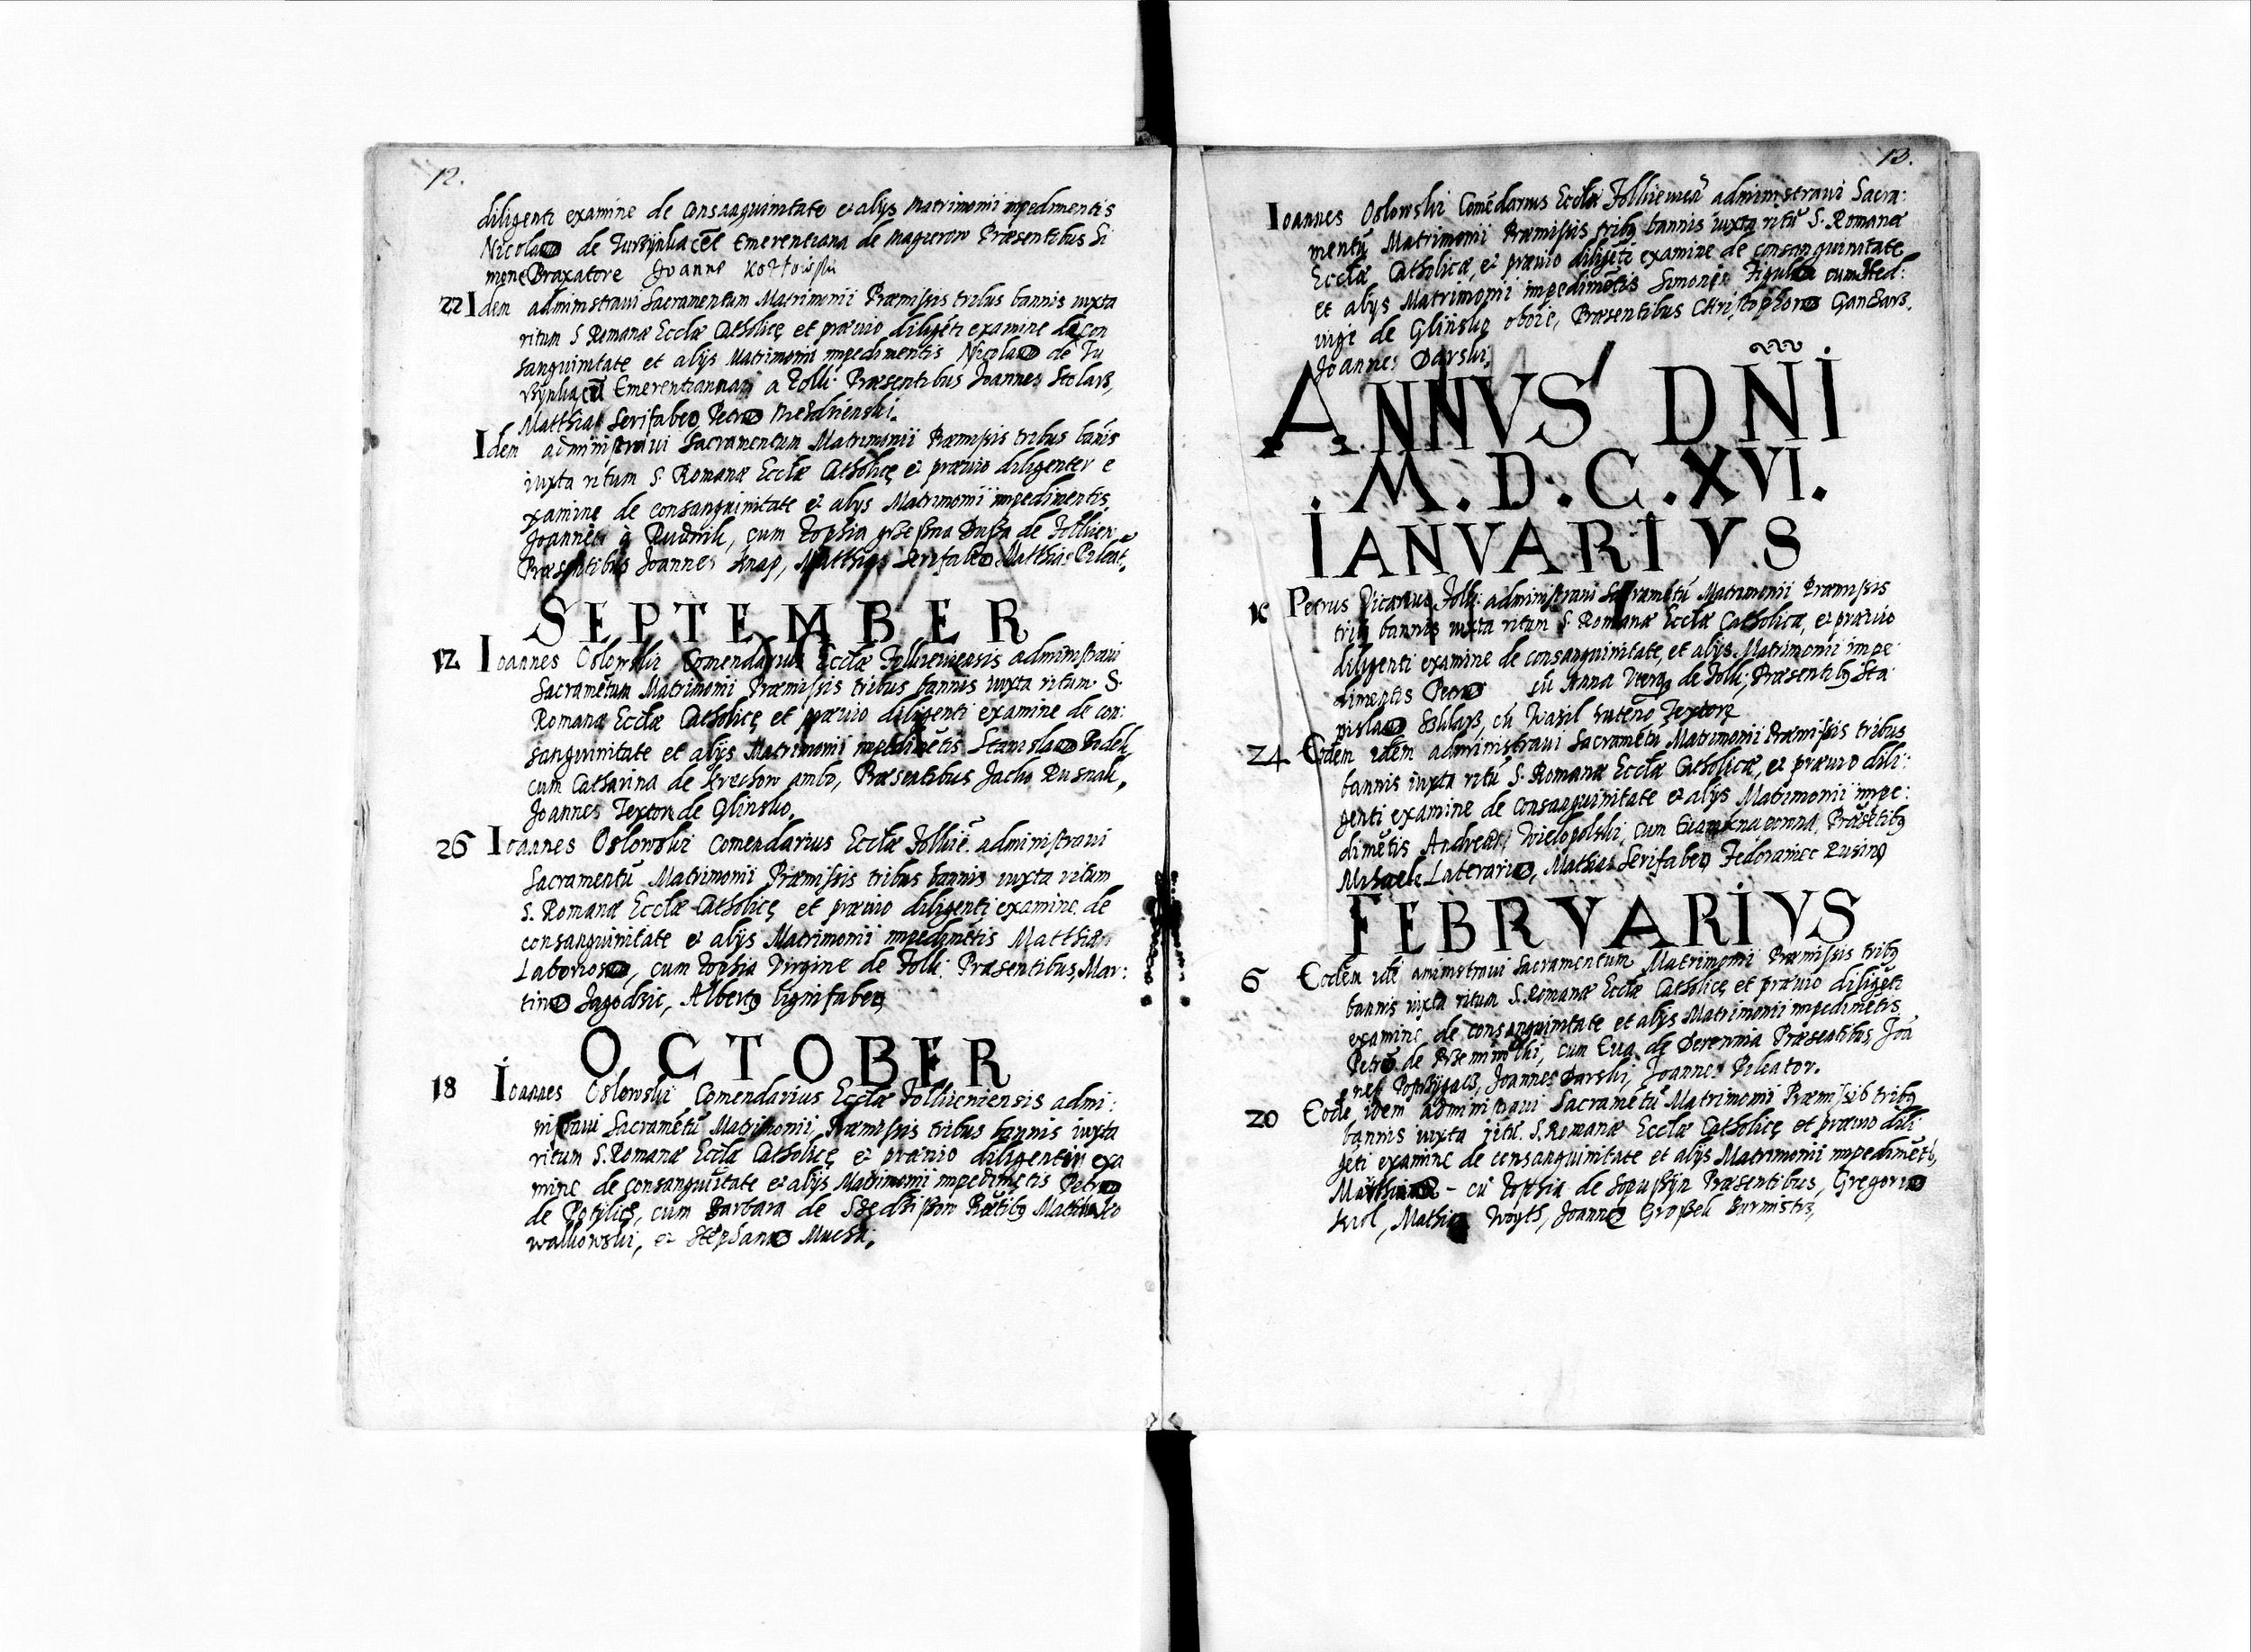 12.
diligenti examine de consanguinitate et alijs Matrimonii impedimentis
Nicolao de Turzynka cũ Emerenciana de Magierow Præsentibus Si
mone Braxatore Joanne Kozłowski
22 Idem administraui Sacramentum Matrimonii Præmissis tribus bannis iuxta
ritum S Romanæ Ecclæ Catholicę et præuio diligēti examine de con
sanguinitate et alijs Matrimonii impedimentis Nicolao de Tu
Emerentiannam a Zolk: Præsentibus Joannes Stolarz,
Matthias Serifabro, Petro
Idem administraui Sacramentum Matrimonii Præmissis tribus banis
iuxta ritum S. Romanæ Ecclæ Catholicę et præuio diligenter e
xamine de consanguinitate et alijs Matrimonii impedimentis
Joannes à Rudnik, cum Zophia de
Præsentibus Joannes Knap, Matthias Serifabro Matthias Pileat.
SEPTEMBER
12 Ioannes Oslowski Comendarius Ecclæ Zolkieuiensis administraui
Sacramētum Matrimonii Præmissis tribus bannis iuxta ritum S.
Romanæ Ecclæ Catholicę et præuio diligenti examine de con:
sanguinitate et alijs Matrimonii impedimētis Stanislao
cum Catharina de Krechow ambo, Præsentibus Jacko Rusnak,
Joannes Textor de Glinsko.
26 Ioannes Oslowski Comendarius Ecclæ Zolkiē. administraui
Sacramentũ Matrimonii Præmissis tribus bannis iuxta ritum
S. Romanæ Ecclæ Catholicę et præuio diligenti examine de
consanguinitate et alijs Matrimonii impedimētis Matthia
Laborioso, cum Zophia Virgine de Zolk: Præsentibus, Mar:
tino Jagodzic, Alberto lignifabro
OCTOBER
18 Ioannes Oslowski Comendarius Ecclæ Zolkieuiensis admi:
nistraui Sacramētũ Matrimonii, Præmissis tribus bannis iuxta
ritum S. Romanæ Ecclæ Catholicę et præuio diligentiri exa
mine de consanguĩtate et alijs Matrimonii impedimētis Petro
de Potylicz, cum Barbara de
walkowski, et Stephano Mucha.
13.
Ioannes Oslowski Comēdarius Ecclæ administraui Sacra:
mentũ Matrimonii Præmissis tribq bannis iuxta ritũ S. Romanæ
Ecclæ Catholicæ, et præuio diligēti examine de consanguinitate
et alijs Matrimonii impedimētis Simones Figulo cum Hed:
uige de Glinsko Præsentibus Christophoro Gancarz.
Joannes Darski.
ANNVS DNI
.M.D.C.XVI.
IANVARIVS
Petrus Vicarius Zolk: administraui Sacramētũ Matrimonii Præmissis
tribq bannis iuxta ritum S. Romanæ Ecclæ Catholicæ, et præuio
diligenti examine de consanguinitate, et alijs Matrimonii impe
dimentis Petro cũ Anna de Zolk: Præsentibq Sta
nislao cũ Wasil ruteno Textore
24 Eodem idem administraui Sacramētũ Matrimonii Præmissis tribus
bannis iuxta ritũ S. Romanæ Ecclæ Catholicæ, et præuio dili:
genti examine de consanguinitate et alijs Matrimonii impe:
dimētis Andreas Wielopolski, cum Præsētibq
Michaele Laterario, Mathias Serifabro
FEBRVARIVS
6 Eodem idē aministraui Sacramentum Matrimonii Præmissis tribq
bannis iuxta ritum S. Romanæ Ecclæ Catholicę et præuio diligēti
examine de consanguinitate et alijs Matrimonii impedimētis
Petro de cum Eua de Derewnia Præsentibus Joa
nes Joannes Darski, Joannes Pileator.
20 Eodē idem administraui Sacramētũ Matrimonii Præmissib tribq
bannis iuxta ritũ. S. Romanæ Ecclæ Catholicę et præuio dili
gēti examine de consanguinitate et alijs Matrimonii impedimētis
cũ Zophia de Præsentibus, Gregorio
Krol, Mathia Woyth, Joanne